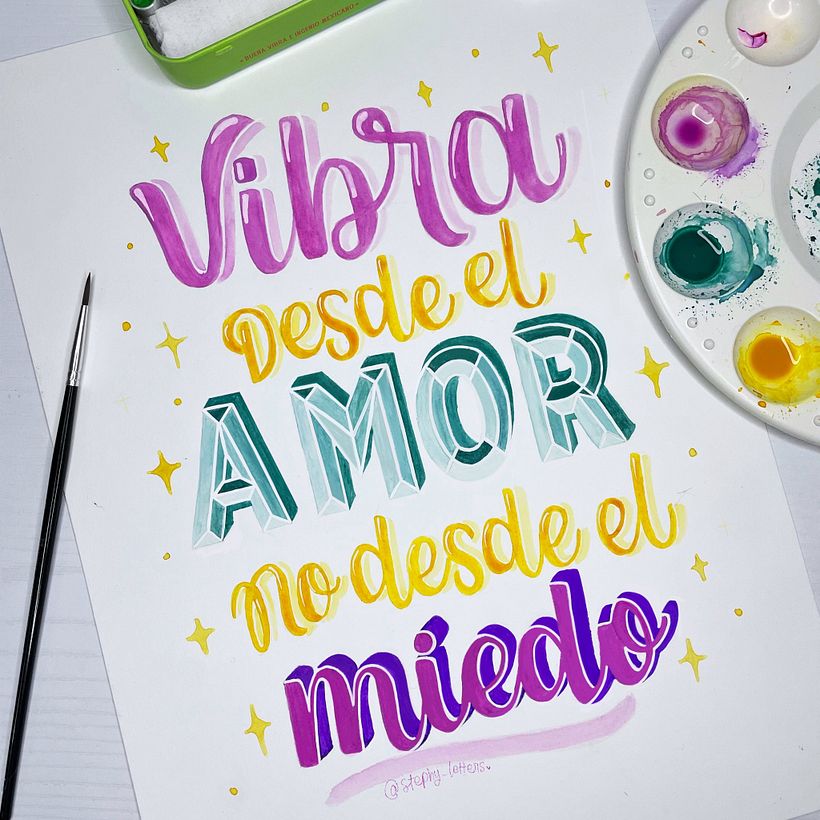 • BUENA VIBRA E INGENIO MEXICANO •
Vibra
Desde el
AMOR
No desde el
miedo
@stephy_letters